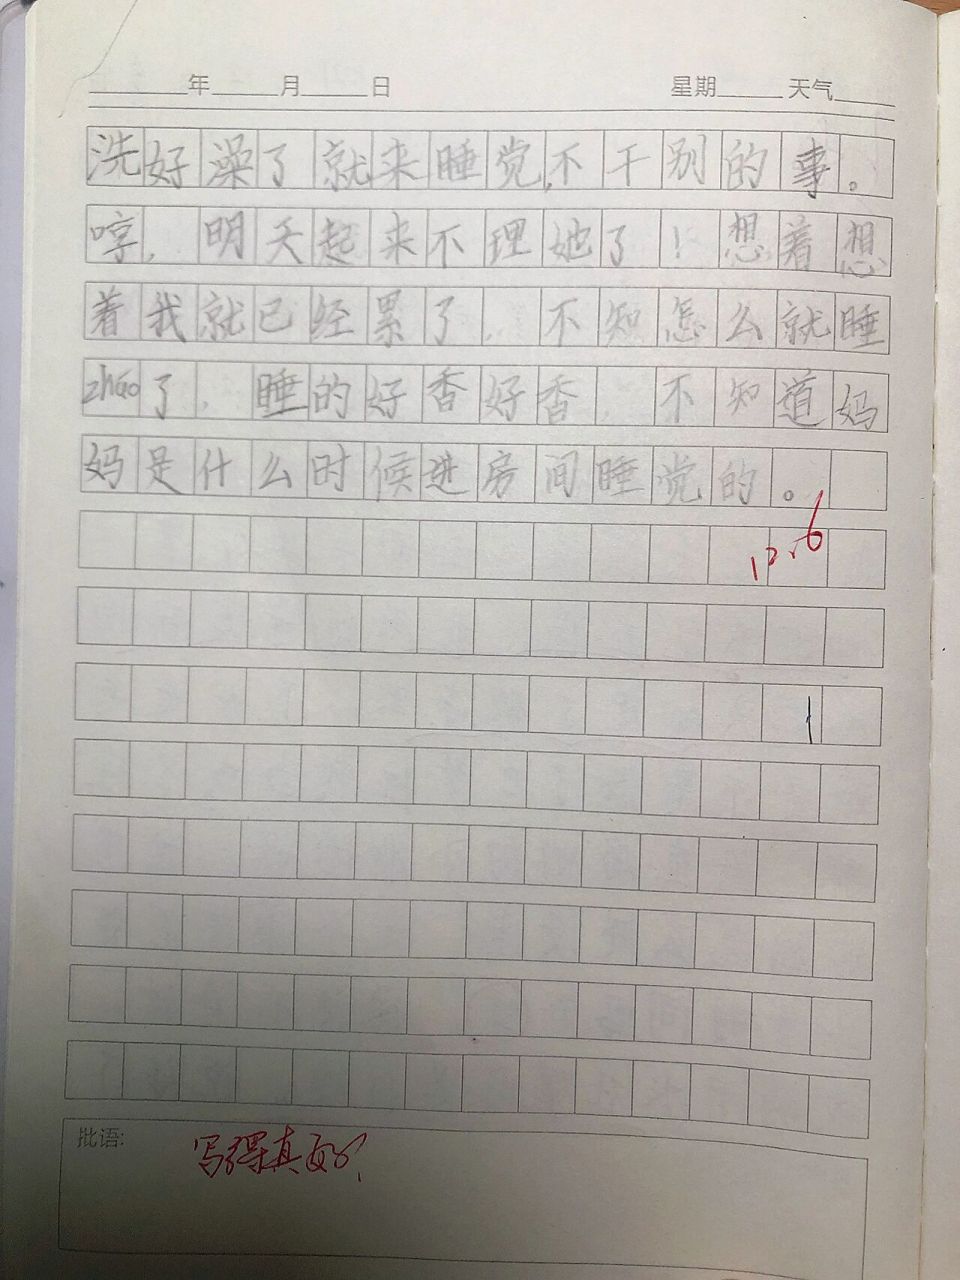 年 月 日 星期 天气
洗好澡了就来睡觉,不干别的事。
哼,明天起来不理她了!想着想
着我就已经累了,不知怎么就睡
zháo了,睡的好香好香,不知道妈
妈是什么时候进房间睡觉的。
12.6
批语: 写得真好!